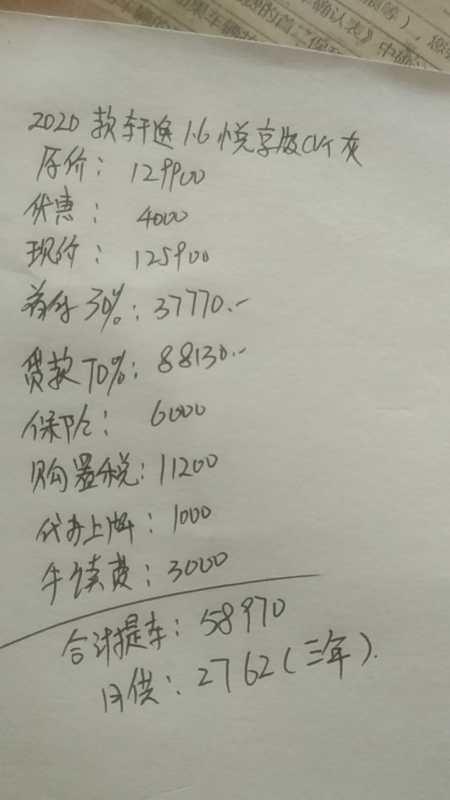 确认表》中确
2020款轩逸1.6悦享版CVT灰
原价：129900
优惠：4000
现价：125900
首付30%：37770.-
贷款70%：88130.-
保险：6000
购置税：11200
代办上牌：1000
手续费：3000
合计提车：58970
月供：2762（三年）.